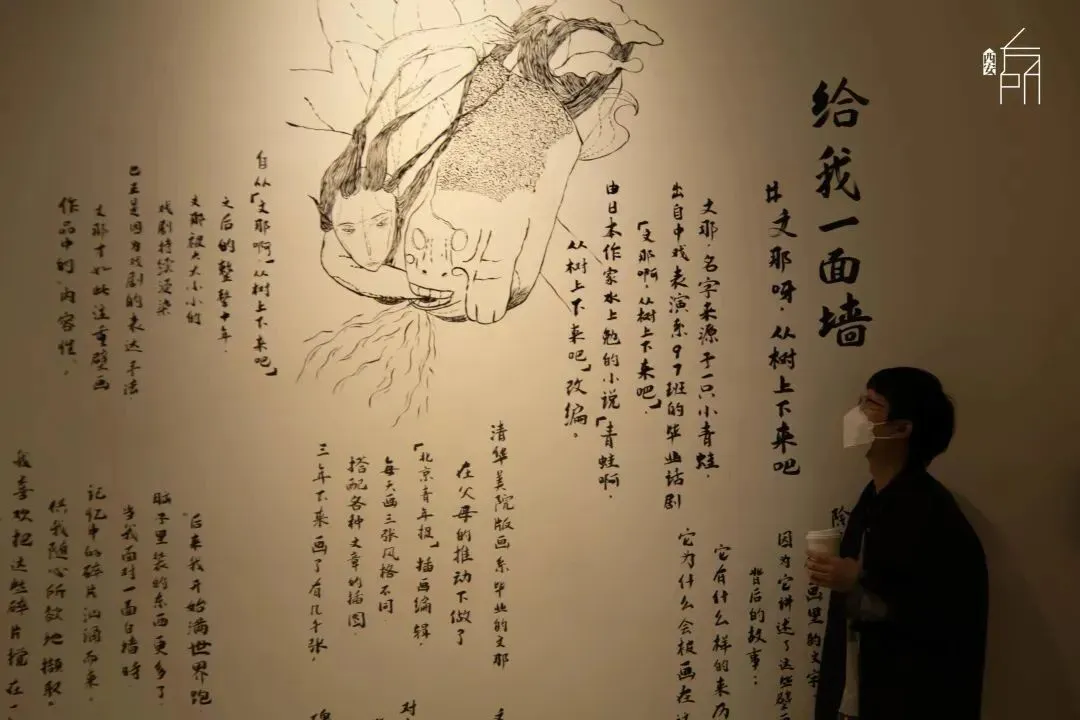 给我一面墙
#文那呀,从树上下来吧
文那,名字来源于一只小青蛙,
出自中戏表演系97班的毕业话剧
「文那啊,从树上下来吧」,
由日本作家水上勉的小说「青蛙啊,
从树上下来吧」改编。
自从「文那啊,从树上下来吧」
之后的整整十年,
文那被大大小小的
戏剧持续浸染
也正是因为戏剧的表达手法
文那才如此注重壁画
作品中的内容性。
画里的文字
因为它讲述了这些壁
背后的故事:
它有什么样的来历
它为什么会被画在这
清华美院版画系毕业的文那
在父母的推动下做了
「北京青年报」插画编辑,
每天画三张风格不同
搭配各种文章的插图,
三年下来画了有几千张,
后来我开始满世界跑
脑子里装的东西更多了,
当我面对一面白墙时
记忆中的碎片汹涌而来,
供我随心所欲地撷取。
我喜欢把这些碎片搅在一
对
西安